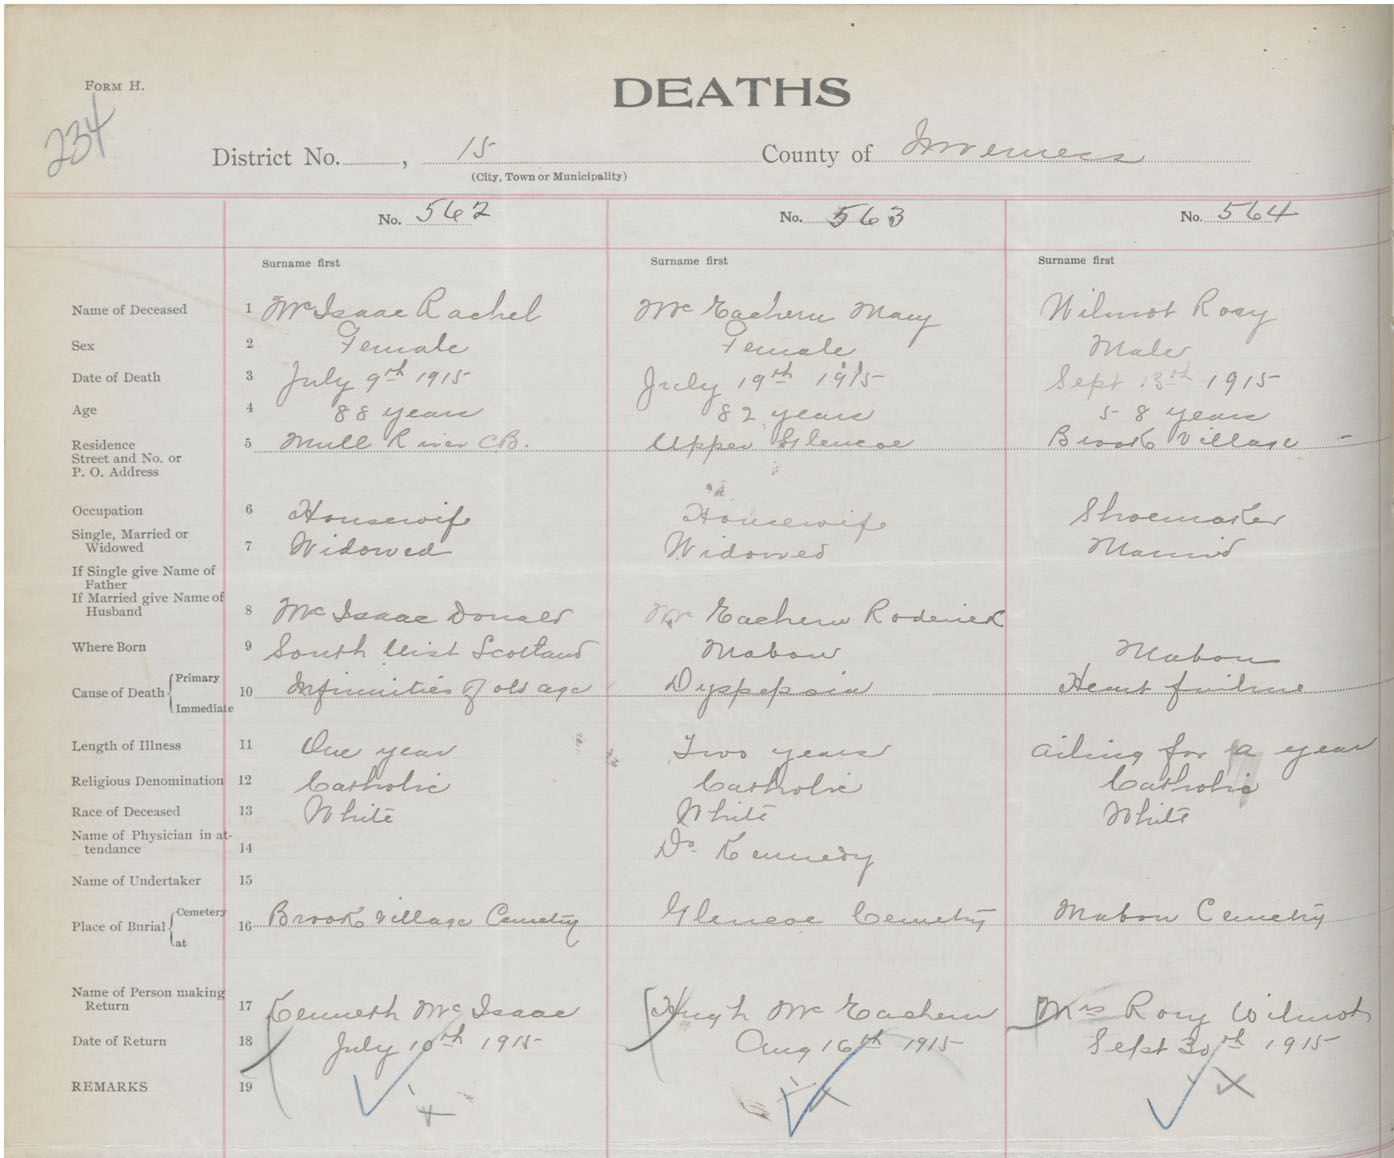 FORM H.
DEATHS
234
District No. , 15 County of Inverness
(City, Town or Municipality)
No. 562 No. 563 No. 564
Surname first Surname first Surname first
Name of Deceased 1 McIsaac Rachel McEachern Mary Wilmot Rory
Sex 2 Female Female Male
Date of Death 3 July 9th 1915 July 19th 1915 Sept 13th 1915
Age 4 88 years 82 years 58 years
Residence 5 Mull River CB. Upper Glencoe Brook Village
Street and No. or
P. O. Address
Occupation 6 Housewife Housewife Shoemaker
Single, Married or
Widowed 7 Widowed Widowed Married
If Single give Name of
Father
If Married give Name of
Husband 8 McIsaac Donald McEachern Roderick
Where Born 9 South Uist Scotland Mabou Mabou
Cause of Death Primary 10 Infirmities of old age Dyspepsia Heart failure
Immediate
Length of Illness 11 One year Two years ailing for a year
Religious Denomination 12 Catholic Catholic Catholic
Race of Deceased 13 White White White
Name of Physician in at-
tendance 14 Dr Kennedy
Name of Undertaker 15
Place of Burial Cemetery 16 Brook Village Cemetry Glencoe Cemetry Mabou Cemetry
at
Name of Person making
Return 17 Kenneth McIsaac Hugh McEachern Mrs Rory Wilmot
Date of Return 18 July 10th 1915 Aug 16th 1915 Sept 30th 1915
REMARKS 19